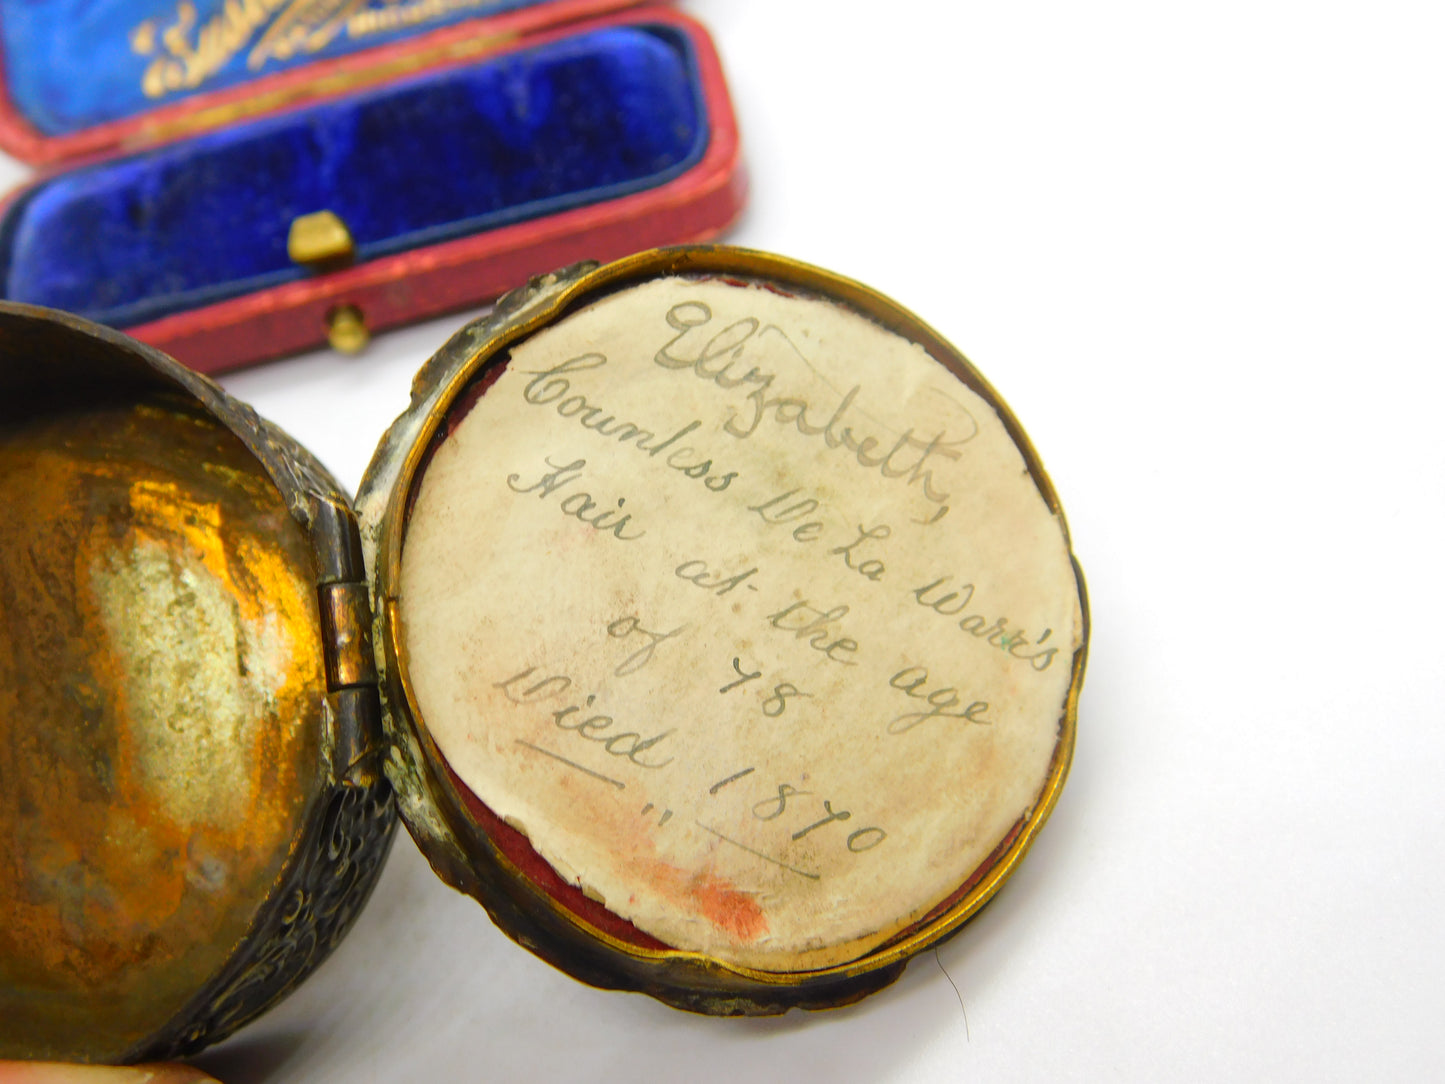 Elizabeth,
Counless De La Warr's
Hair at the age
of 78
Died " 1870